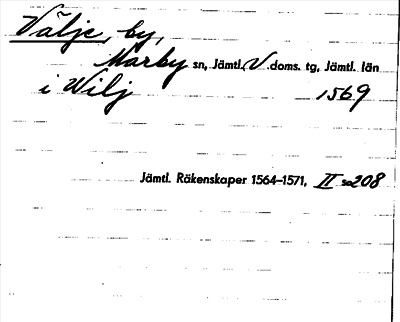 Välje, by,
Marby sn, Jämtl. V. doms. tg, Jämtl. län
i Wilj 1569
Jämtl. Räkenskaper 1564–1571, II s 208